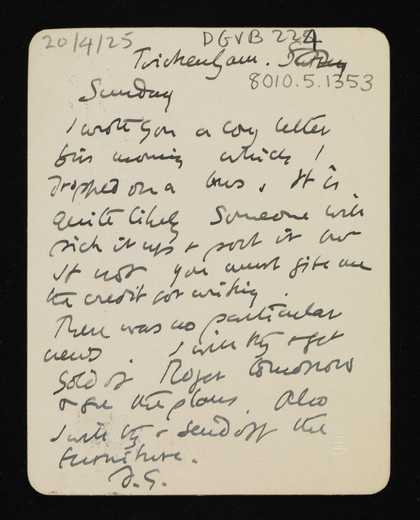 20/4/25 DGVB 224
Twickenham.
8010.5.1353
Sunday
I wrote you a long letter
this morning which I
dropped on a bus. It is
quite likely someone will
pick it up & post it but
if not you must give me
the credit for writing.
There was no particular
news. I will try & get
hold of Roger tomorrow
& see the plans. Also
I will try & send off the
furniture.
D.G.